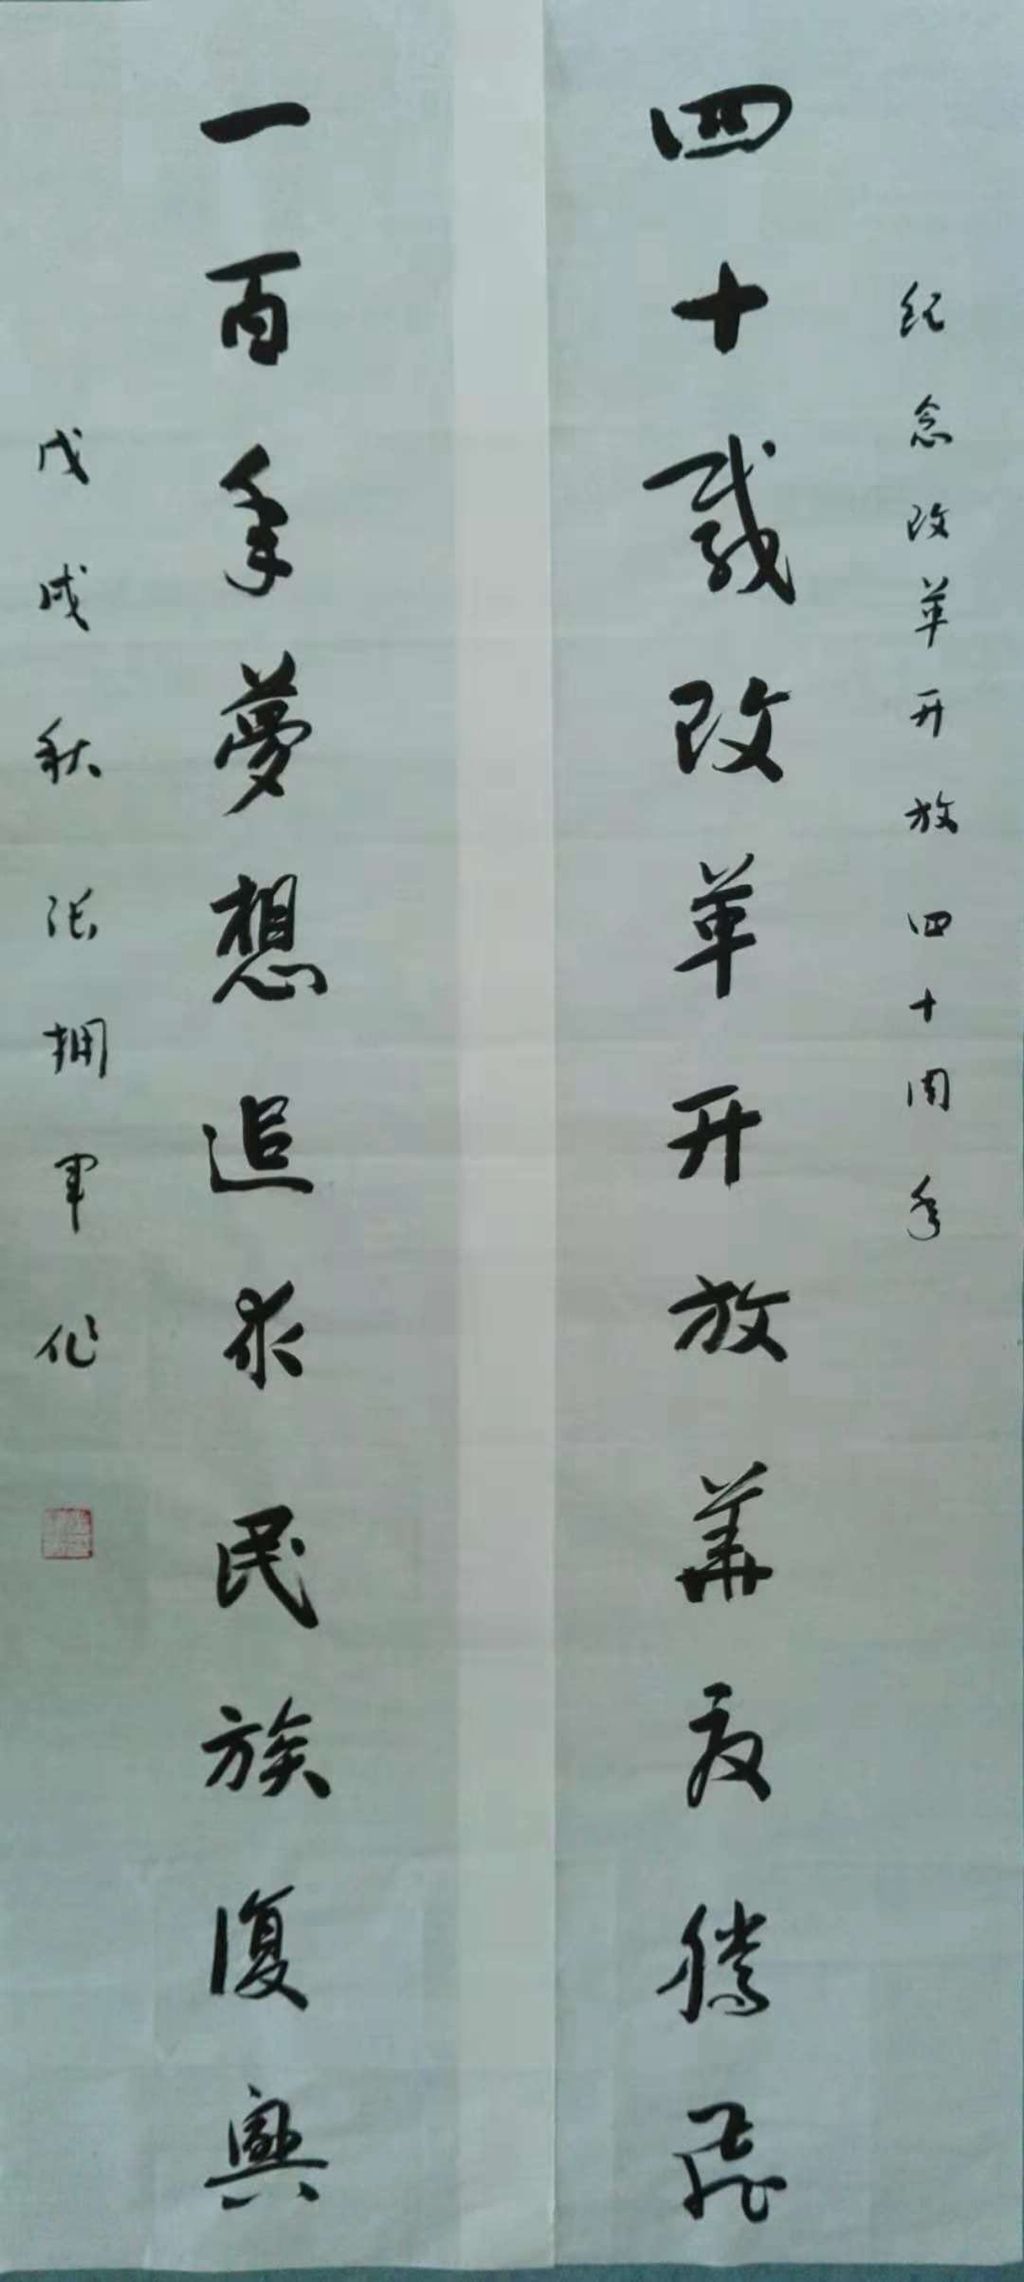 纪念改革开放四十周年
四十载改革开放华夏腾飞
一百年夢想追求民族復興
戊戌秋张拥军作